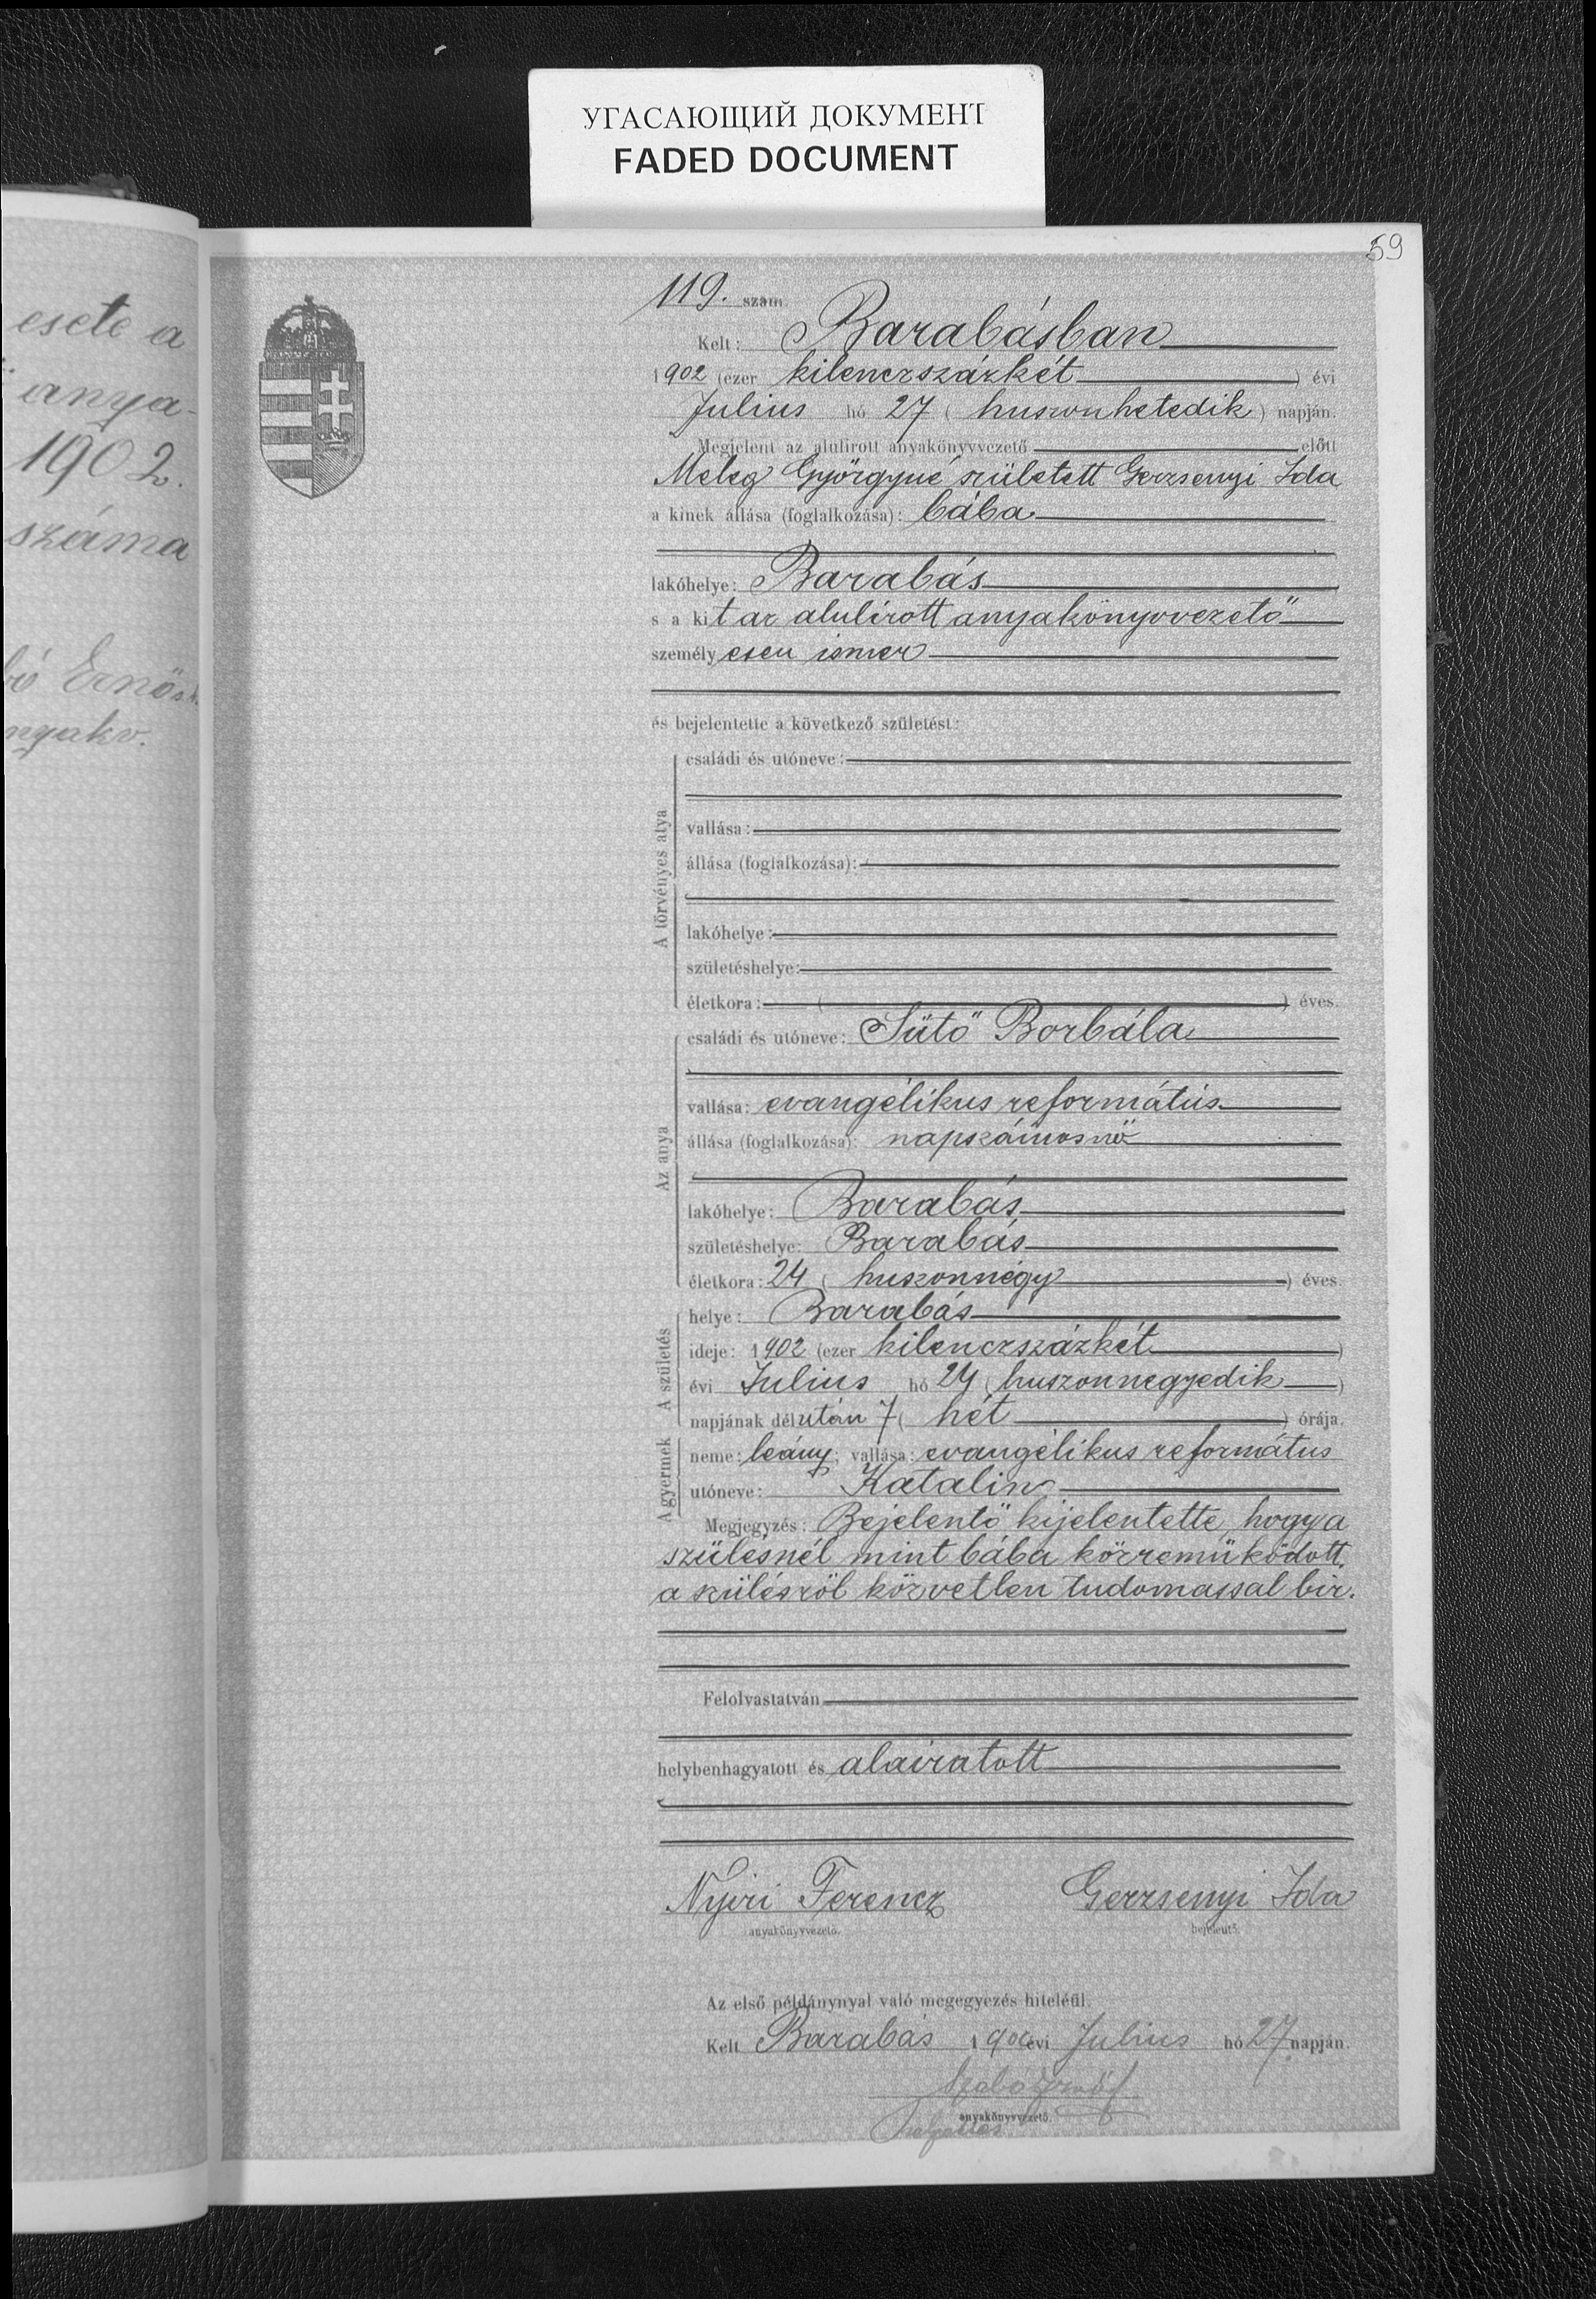 УГАСАЮЩИЙ ДОКУМЕНТ
FADED DOCUMENT
59
esete a
anya-
1902.
száma
bó Ernő s.k.
nyakv.
119. szám
Kelt: Barabásban
1902 (ezer kilenczszázkét) évi
Julius hó 27 (huszonhetedik) napján.
Megjelent az alulirott anyakönyvvezető előtt
Meleg Györgyné született Gerzsenyi Ida
a kinek állása (foglalkozása): bába
lakóhelye: Barabás
s a kit az alulirott anyakönyvvezető
személyesen ismer
és bejelentette a következő születést:
A törvényes atya
családi és utóneve:
vallása:
állása (foglalkozása):
lakóhelye:
születéshelye:
életkora: ( ) éves.
Az anya
családi és utóneve: Sütő Borbála
vallása: evangélikus református
állása (foglalkozása): napszámosnő
lakóhelye: Barabás
születéshelye: Barabás
életkora: 24 (huszonnégy) éves.
A születés
helye: Barabás
ideje: 1902 (ezer kilenczszázkét)
évi Julius hó 24 (huszonnegyedik)
napjának délután 7 (hét) órája.
A gyermek
neme: leány; vallása: evangélikus református
utóneve: Katalin
Megjegyzés: Bejelentő kijelentette, hogy a
szülésnél mint bába közremüködött.
a szülésről közvetlen tudomassal bir.
Felolvastatván
helybenhagyatott és alairatott
Nyiri Ferencz Gerzsenyi Ida
anyakönyvvezető. bejelentő.
Az első példánynyal való megegyezés hiteléül.
Kelt Barabás 1902 évi Julius hó 27 napján.
Szabó Ernő
anyakönyvvezető.